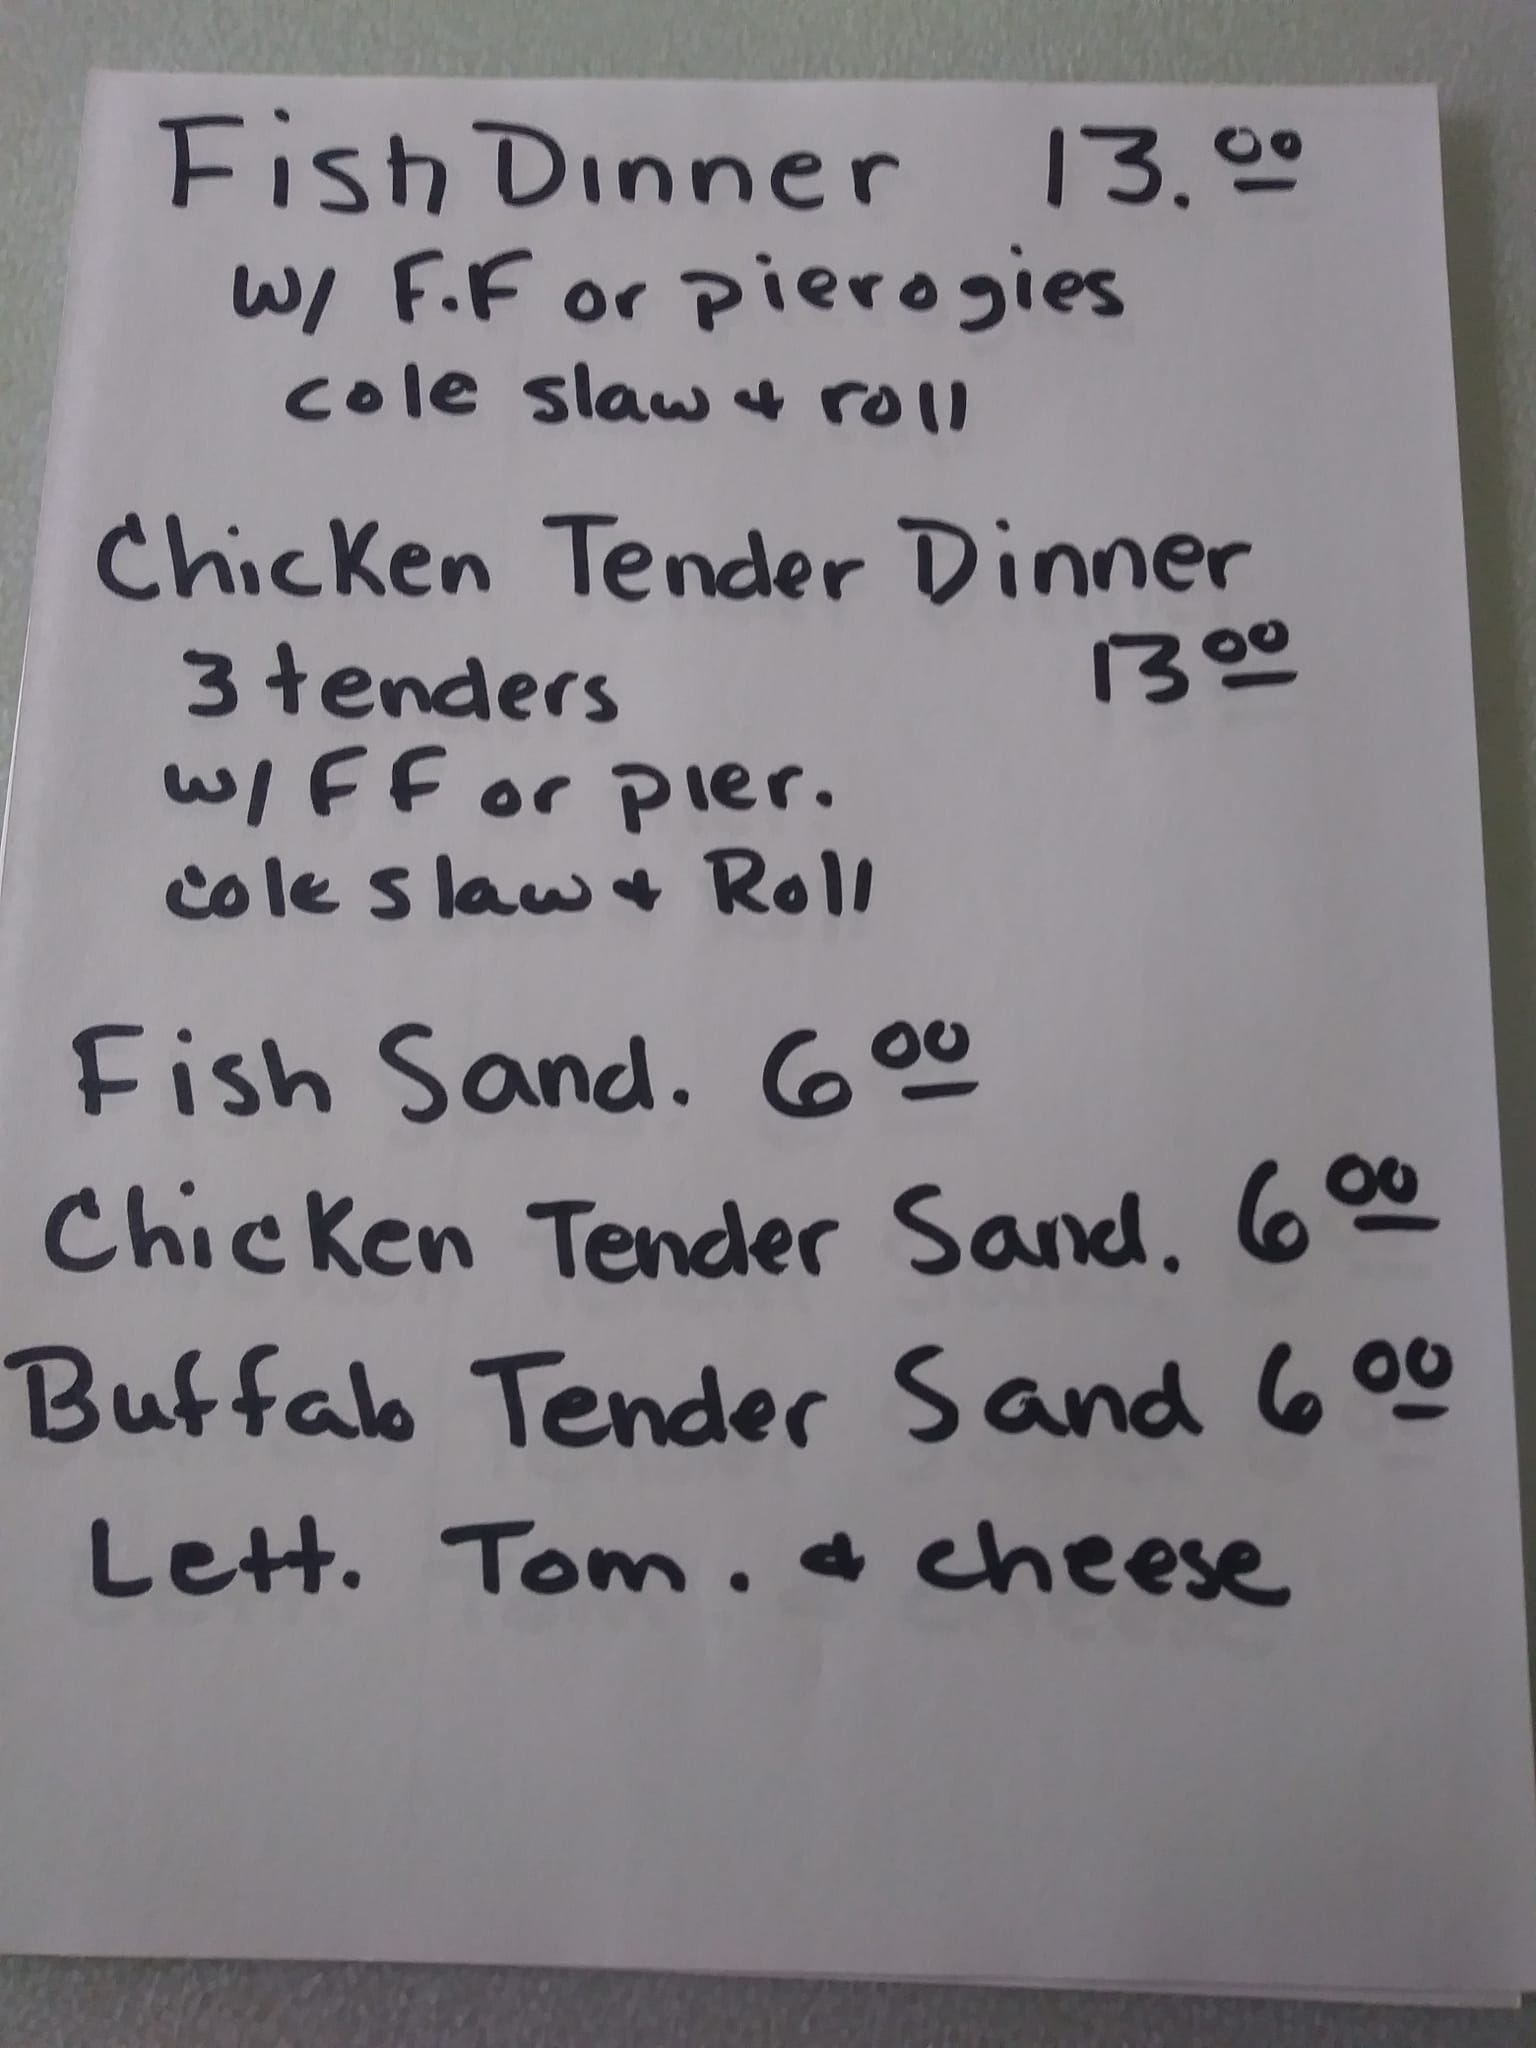 Fish Dinner 13.00
w/ F.F or pierogies
cole slaw & roll
Chicken Tender Dinner
3 tenders 13 00
w/ FF or pier.
cole slaw & Roll
Fish Sand. 6 00
Chicken Tender Sand. 6 00
Buffalo Tender Sand 6 00
Lett. Tom. & cheese